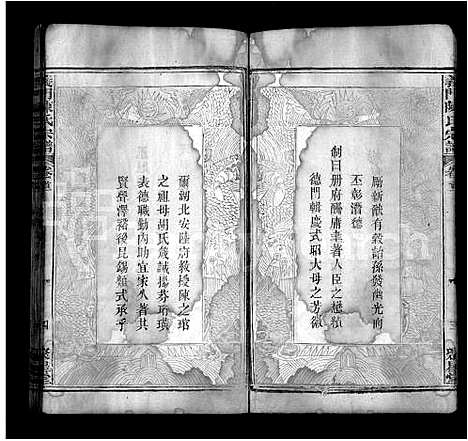 義門陳氏宗譜
卷首
三
勵新猷有穀詒孫發幽光而
丕彰潛德
制曰册府酬庸聿著人臣之懋績
德門輯慶式昭大母之芳徽
爾湖北安陸府教授陳之琯
之祖母胡氏箴誡揚芬珩璜
表德職勤內助宜家久著其
賢聲澤裕後昆錫類式承乎
義門陳氏宗譜
卷首
四